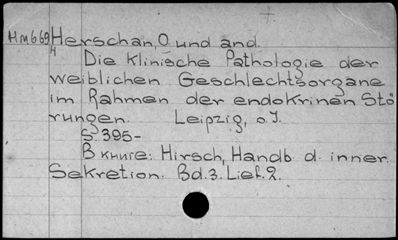 Hm669 Herschan, O und and.
Die klinische Pathologie der
weiblichen Geschlechtsorgane
im Rahmen der endokrinen Stö
rungen. Leipzig, o.J.
S. 395-
В книге: Hirsch, Handb. d. inner.
Sekretion. Bd.3. Lief.2.